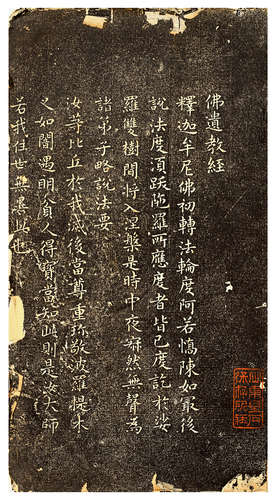 佛遺教經
釋迦牟尼佛初轉法輪度阿若憍陳如最後
說法度須跋陀羅所應度者皆已度訖於娑
羅雙樹間將入涅槃是時中夜寂然無聲為
諸弟子略說法要
汝等比丘於我滅後當尊重珍敬波羅提木
叉如闇遇明貧人得寶當知此則是汝大師
若我住世無異此也